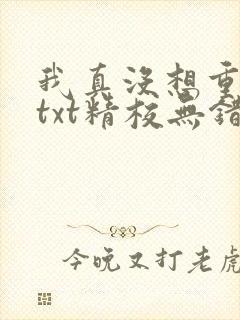 我真没想重
txt精校無錯
今晚又打老虎